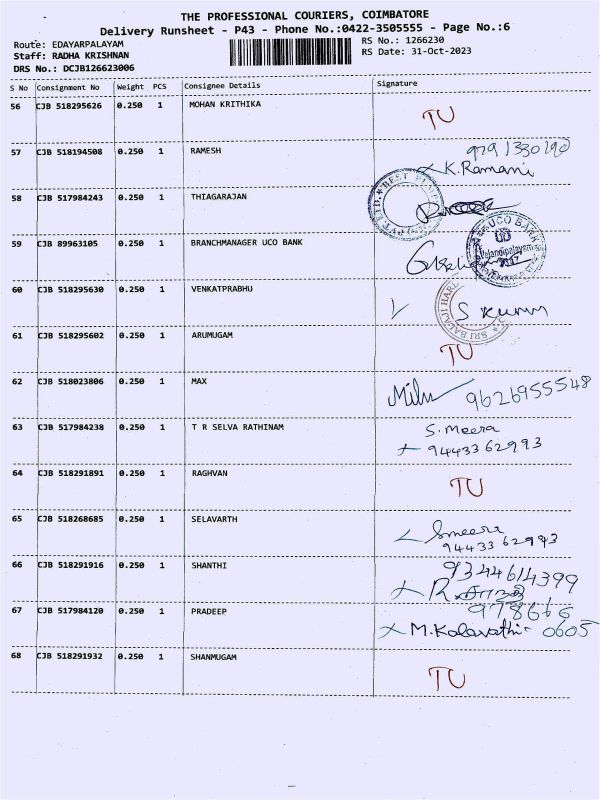 THE PROFESSIONAL COURIERS, COIMBATORE
Delivery Runsheet - P43 - Phone No.:0422-3505555 - Page No.:6
Route: EDAYARPALAYAM RS No.: 1266230
Staff: RADHA KRISHNAN RS Date: 31-Oct-2023
DRS No.: DCJB126623006
S No Consignment No Weight PCS Consignee Details Signature
56 CJB 518295626 0.250 1 MOHAN KRITHIKA TU
57 CJB 518194508 0.250 1 RAMESH 9791330190
K.Ramani
58 CJB 517984243 0.250 1 THIAGARAJAN
59 CJB 89963105 0.250 1 BRANCHMANAGER UCO BANK UCO BANK
60 CJB 518295630 0.250 1 VENKATPRABHU S Kumar
SRI BALAJI
61 CJB 518295602 0.250 1 ARUMUGAM TU
62 CJB 518023806 0.250 1 MAX 9626955548
63 CJB 517984238 0.250 1 T R SELVA RATHINAM S. Meera
9443362993
64 CJB 518291891 0.250 1 RAGHVAN TU
65 CJB 518268685 0.250 1 SELAVARTH Smeera
9443362993
66 CJB 518291916 0.250 1 SHANTHI 9344614399
67 CJB 517984120 0.250 1 PRADEEP 978666
M.Kalavathi 0605
68 CJB 518291932 0.250 1 SHANMUGAM TU